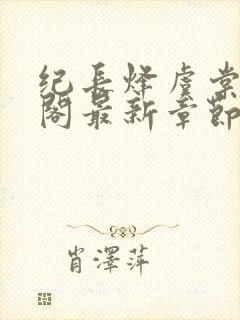 纪长烽虞棠
阁最新章节
肖澤萍